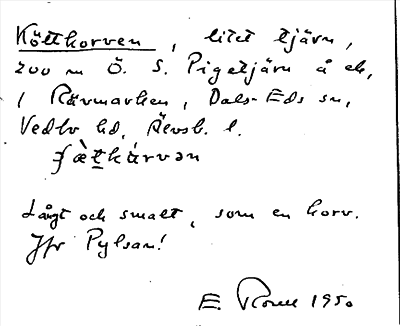 Kötthorven, litet tjärn,
200 m Ö. S. Pigetjärn å ek,
/ Rävmarken, Dals-Eds sn,
Vedbo hd, Älvsb. l.
Långt och smalt, som en korv.
Jfr Pylsan!
E. 1950